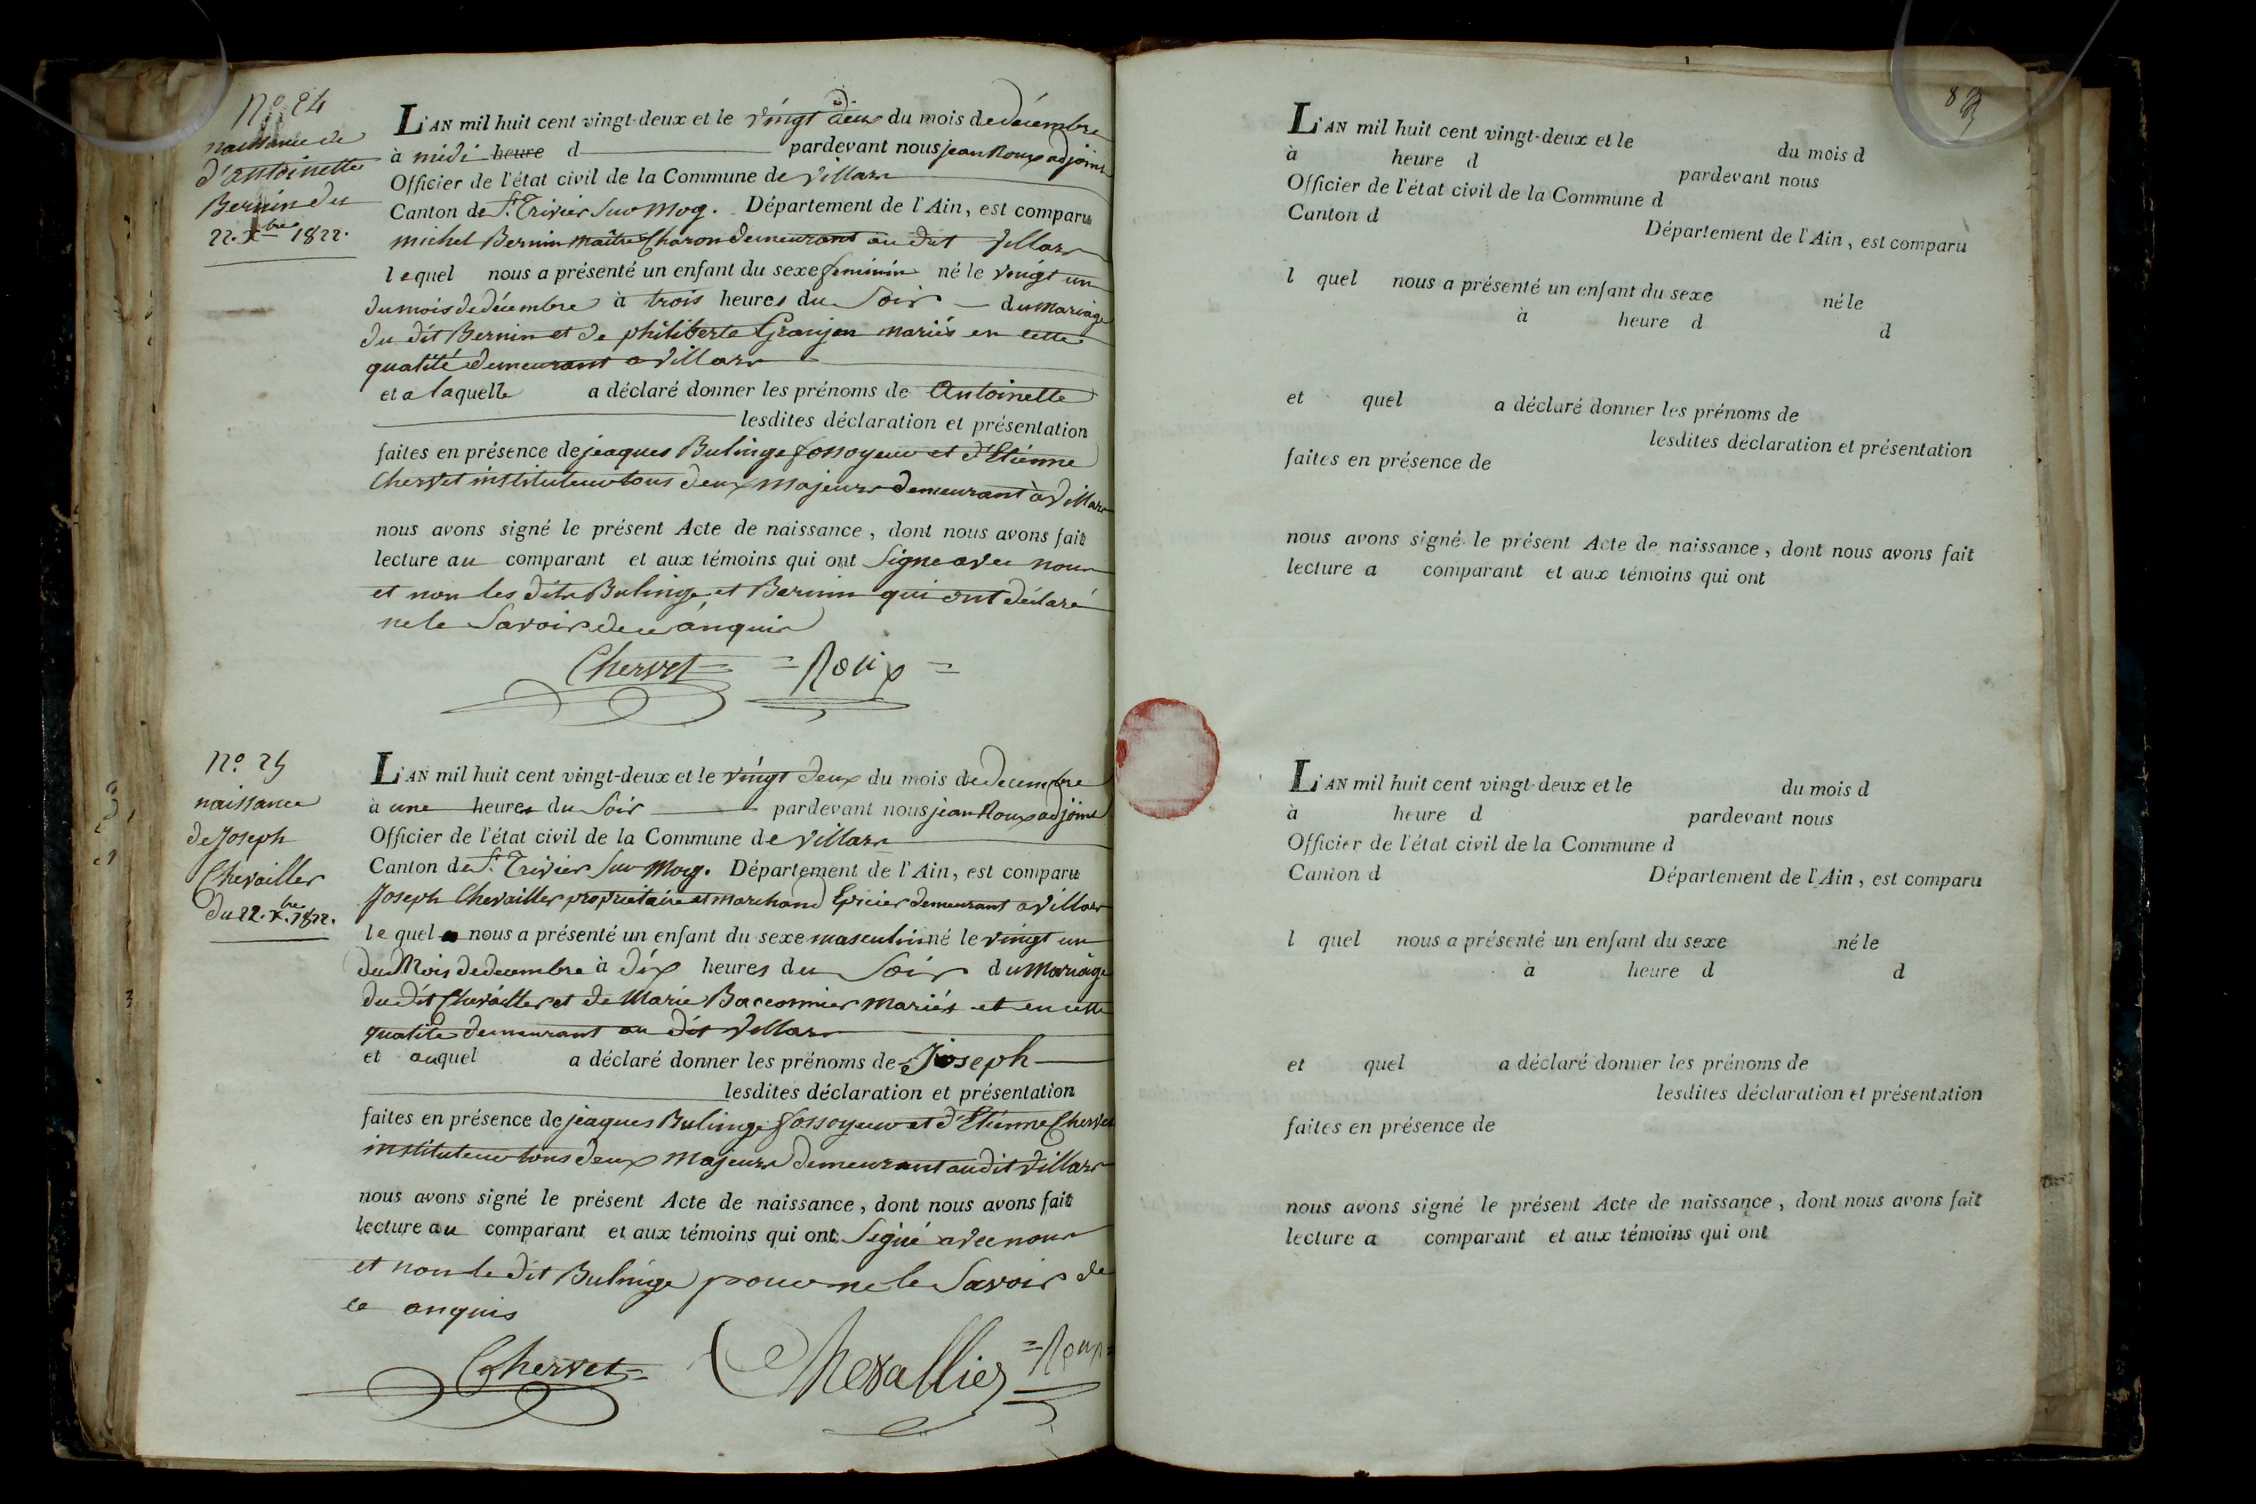 N.º 24
naissance de
d'antoinette
Bernin du
22. Xbre 1822.
L'AN mil huit cent vingt-deux et le vingt deux du mois de décembre
à midi heure d pardevant nous jean Roux adjoint
Officier de l'état civil de la Commune de Villars
Canton de St. Trivier Sur Mog. Département de l'Ain, est comparu
michel Bernin maître Charon demeurant au dit Villars
lequel nous a présenté un enfant du sexe feminin né le vingt un
du mois de décembre à trois heures du Soir du mariage
du dit Bernin et de philiberte Granjan mariés en cette
qualité demeurant a Villars
et a laquelle a déclaré donner les prénoms de Antoinette
lesdites déclaration et présentation
faites en présence de jeaques Bulinge fossoyeur et d'Etienne
Chervet instituteur tous deux majeurs demeurant à Villars
nous avons signé le présent Acte de naissance, dont nous avons fait
lecture au comparant et aux témoins qui ont Signe avec nous
et non les dits Bulinge et Bernin qui ont déclaré
ne le Savoir de ce anquis
Chervet = Roux =
N.º 25
naissance
de Joseph
Chevailler
du 22. X.bre 1822.
L'AN mil huit cent vingt-deux et le vingt deux du mois de decembre
à une heures du Soir pardevant nous jean Roux adjoint
Officier de l'état civil de la Commune de Villars
Canton de St. Trivier Sur Mog. Département de l'Ain, est comparu
Joseph Chevailler propriétaire et marchand Epicier demeurant a Villars
le quel nous a présenté un enfant du sexe masculin né le vingt un
du Mois de decembre à dix heures du Soir du mariage
du dit Chevailler et de Marie Bacconnier mariés et en cette
qualité demeurant au dit Villars
et auquel a déclaré donner les prénoms de Joseph
lesdites déclaration et présentation
faites en présence de jeaques Bulinge fossoyeur et d'Etienne Chervet
instituteur tous deux majeurs demeurant audit Villars
nous avons signé le présent Acte de naissance, dont nous avons fait
lecture au comparant et aux témoins qui ont Signé avec nous
et non le dit Bulinge pour ne le Savoir de
ce anquis
Chervet = Chevallier = Roux =
L'AN mil huit cent vingt-deux et le du mois d
à heure d pardevant nous
Officier de l'état civil de la Commune d
Canton d Département de l'Ain, est comparu
l quel nous a présenté un enfant du sexe né le
à heure d d
et quel a déclaré donner les prénoms de
lesdites déclaration et présentation
faites en présence de
nous avons signé le présent Acte de naissance, dont nous avons fait
lecture a comparant et aux témoins qui ont
L'AN mil huit cent vingt-deux et le du mois d
à heure d pardevant nous
Officier de l'état civil de la Commune d
Canton d Département de l'Ain, est comparu
l quel nous a présenté un enfant du sexe né le
à heure d d
et quel a déclaré donner les prénoms de
lesdites déclaration et présentation
faites en présence de
nous avons signé le présent Acte de naissance, dont nous avons fait
lecture a comparant et aux témoins qui ont